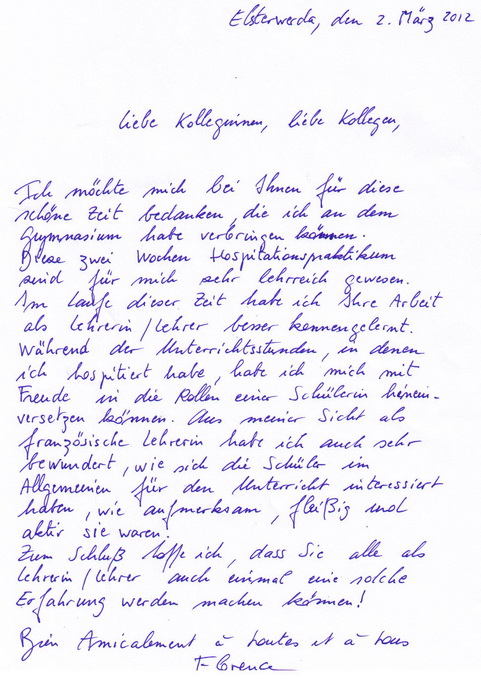 Elsterwerda, den 2. März 2012
liebe Kolleginnen, liebe Kollegen,
Ich möchte mich bei Ihnen für diese
schöne Zeit bedanken, die ich an dem
Gymnasium habe verbringen können.
Diese zwei Wochen Hospitationspraktikum
sind für mich sehr lehrreich gewesen.
Im Laufe dieser Zeit habe ich Ihre Arbeit
als Lehrerin/Lehrer besser kennengelernt.
Während der Unterrichtsstunden, in denen
ich hospitiert habe, habe ich mich mit
Freude in die Rollen einer Schülerin hinein-
versetzen können. Aus meiner Sicht als
französische Lehrerin habe ich auch sehr
bewundert, wie sich die Schüler im
Allgemeinen für den Unterricht interessiert
haben, wie aufmerksam, fleißig und
aktiv sie waren.
Zum Schluß hoffe ich, dass Sie alle als
Lehrerin/Lehrer auch einmal eine solche
Erfahrung werden machen können!
Bien Amicalement à toutes et à tous
Florence